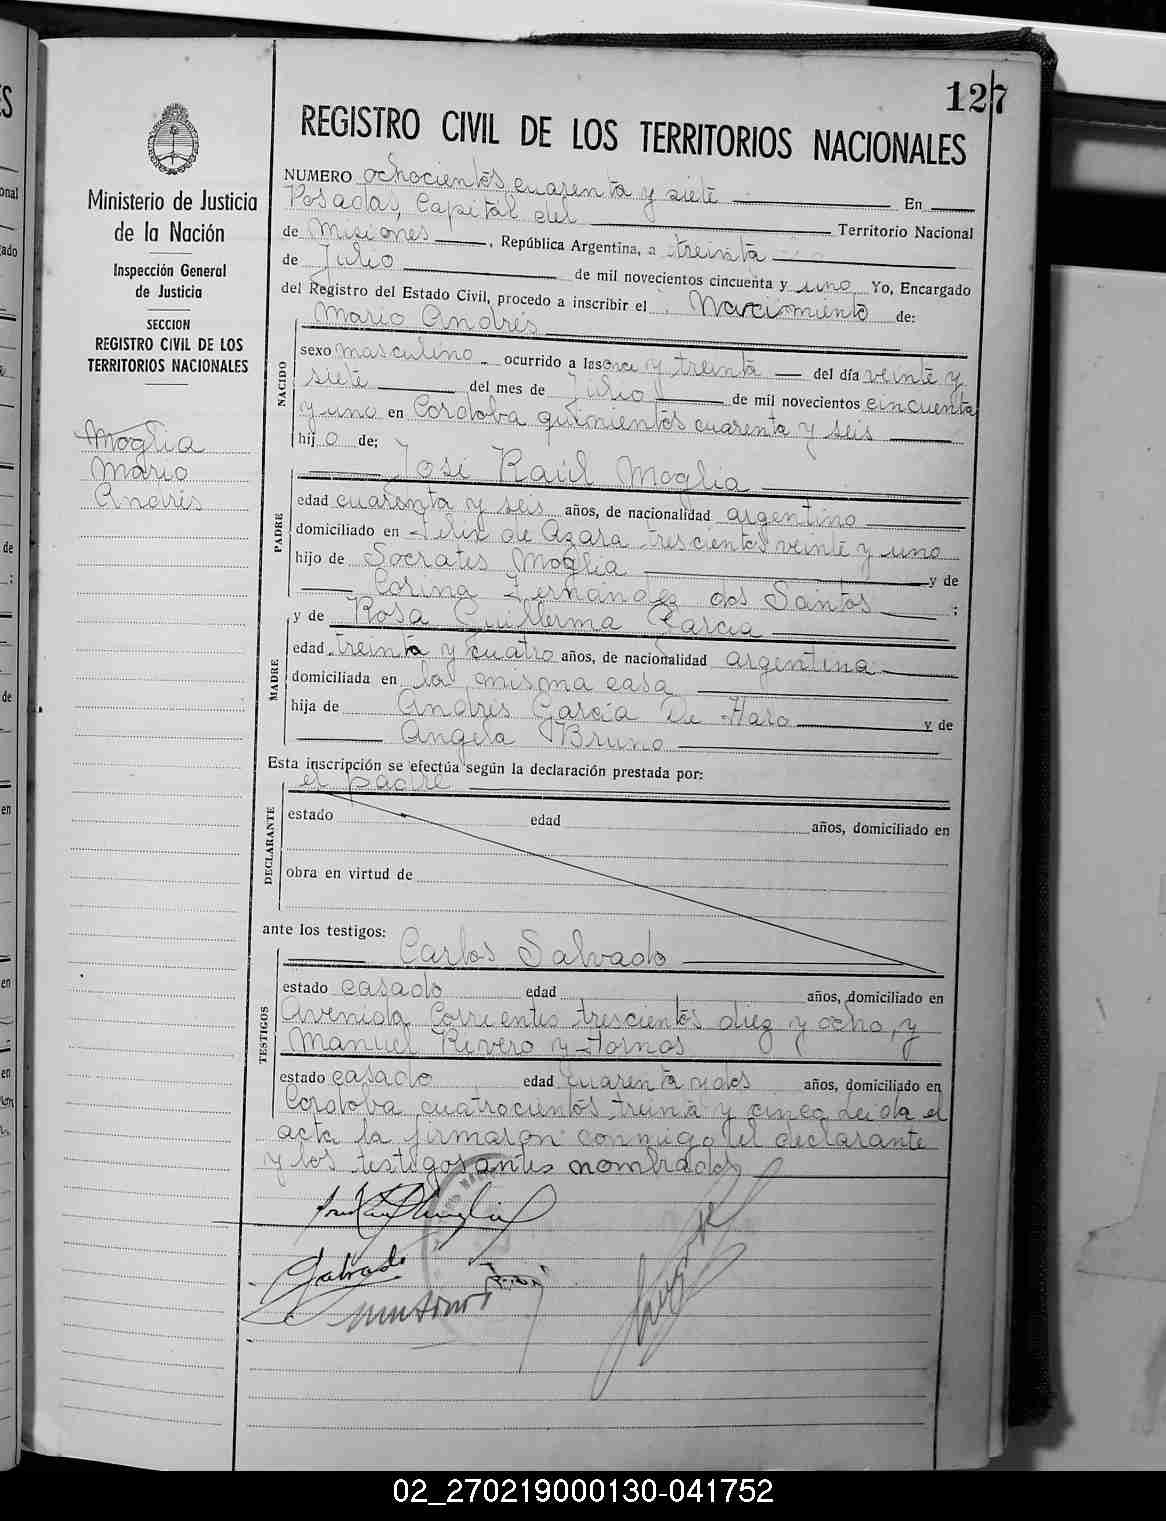 127
REGISTRO CIVIL DE LOS TERRITORIOS NACIONALES
Ministerio de Justicia
de la Nación
Inspección General
de Justicia
SECCION
REGISTRO CIVIL DE LOS
TERRITORIOS NACIONALES
Moglia
Mario
Andrés
NUMERO ochocientos cuarenta y siete En
Posadas, Capital del Territorio Nacional
de Misiones, República Argentina, a treinta
de Julio de mil novecientos cincuenta y uno Yo, Encargado
del Registro del Estado Civil, procedo a inscribir el Nacimiento de:
Mario Andrés
NACIDO
sexo masculino ocurrido a las once y treinta del día veinte y
siete del mes de Julio de mil novecientos cincuenta
y uno en Cordoba quinientos cuarenta y seis
hijo de:
José Raúl Moglia
PADRE
edad cuarenta y seis años, de nacionalidad argentino
domiciliado en Felix de Azara trescientos veinte y uno
hijo de Socrates Moglia y de
Corina Fernández dos Santos ;
y de Rosa Guillerma Garcia
MADRE
edad treinta y cuatro años, de nacionalidad argentina
domiciliada en la misma casa
hija de Andrés García De Haro y de
Angela Bruno
Esta inscripción se efectúa según la declaración prestada por:
el padre
DECLARANTE
estado edad años, domiciliado en
obra en virtud de
ante los testigos:
Carlos Salvado
TESTIGOS
estado casado edad años, domiciliado en
Avenida Corrientes trescientos diez y ocho, y
Manuel Rivero y Hornos
estado casado edad cuarenta y dos años, domiciliado en
Cordoba cuatrocientos treinta y cinco Leida el
acta la firmaron conmigo el declarante
y los testigos antes nombrados
Salvado
02_270219000130-041752